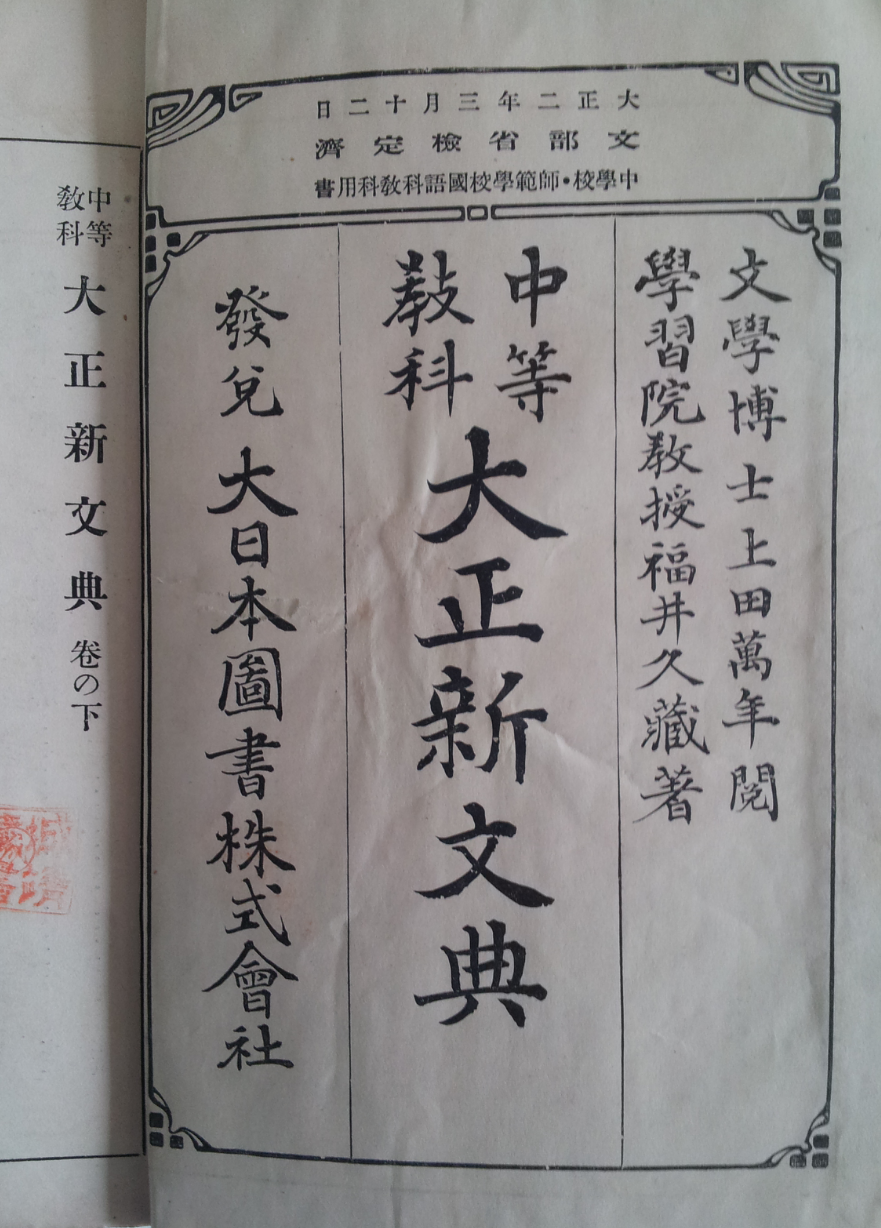 大正二年三月十二日
文部省檢定濟
中學校・師範學校國語科敎科用書
文學博士上田萬年閱
學習院敎授福井久藏著
中等
敎科
大正新文典
發兌 大日本圖書株式會社
中等
敎科
大正新文典 卷の下